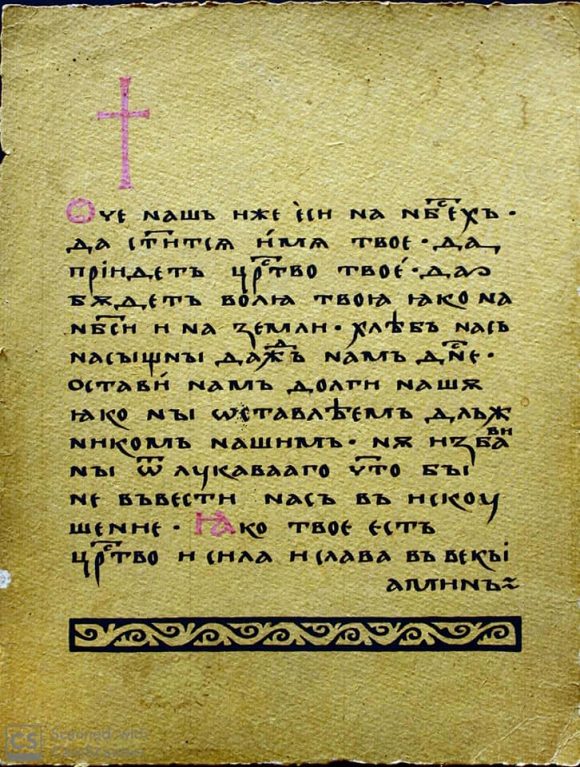 Оче нашъ иже еси на нб҃сехъ·
да ст҃ится и́мя твое·да
прiидетъ цр҃тво твое́·да
бѫдетъ волꙗ твоꙗ ꙗко на
нб҃си и на земли·хлѣбъ насъ
насыщны даждъ намъ дн҃е·
остави́ намъ долги нашѧ
ꙗко ны ѡставлѣемъ длъж
никомъ нашимъ·нѧ избави
ны ѿ лукавааго чт҃о бы
не въвести насъ въ искоу
шение·Ꙗко твое естъ
цр҃ство и сила и слава въ векыi
аминъ~
CS Scanned with
CamScanner